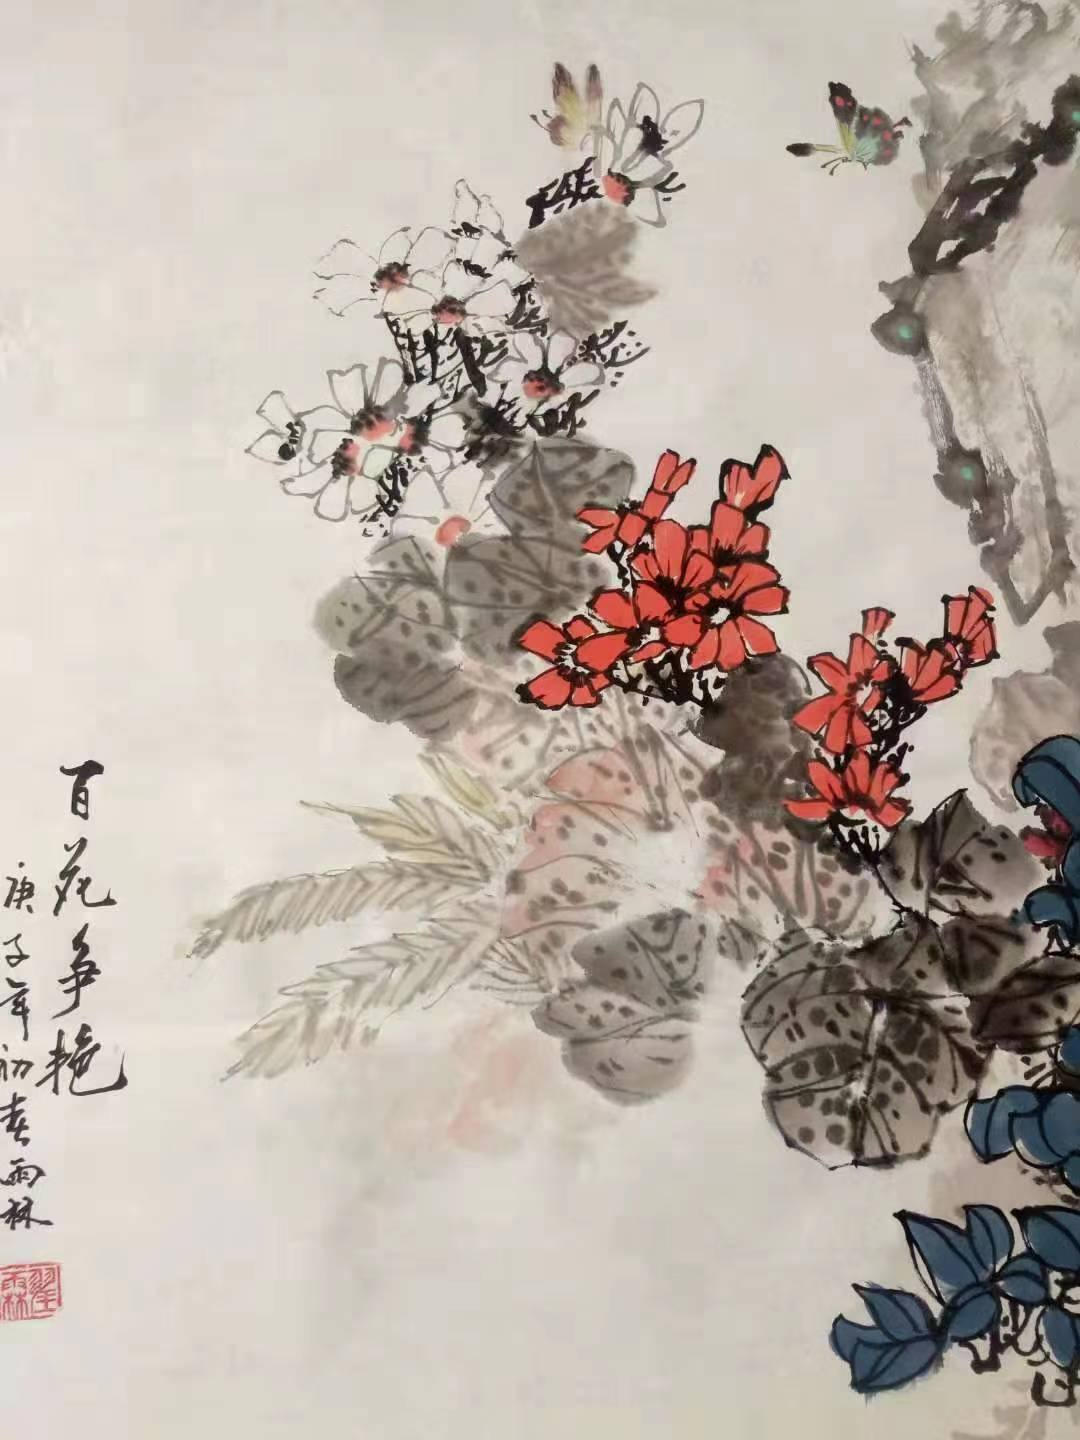 百花争艳
庚子年初春雨林